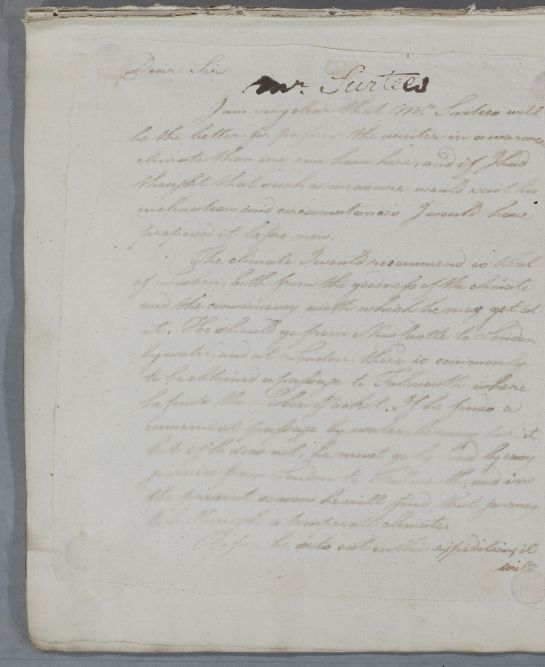 Dear Sir
Mr. Surtees
I am very clear that Mr. Surtees will
be the better for passing the winter in a warmer
climate than we can have here, and if I had
thought that such a measure would suit his
inclination and circumstances I would have
proposed it before now.
The climate I would recommend is that
of Lisbon, both from the goodness of the climate
and the conveniency with which he may get at
it. He should go from Newcastle to London
by water, and at London there is commonly
to be obtained a passage to Falmouth where
he finds the Lisbon Packet. If he finds a
convenient passage by water, he may
but if he does not, he must go by land by easy
journies from London to Falmouth, and in
the present season he will find that journey
to be through a temperate climate.
Before he sets out on this expedition, it
will